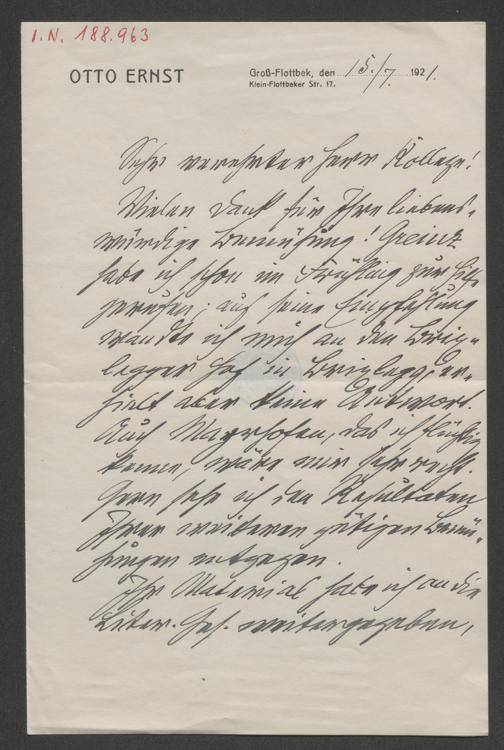 I.N. 188.963
OTTO ERNST
Groß-Flottbek, den 15./7. 1921.
Klein-Flottbeker Str. 17.
Sehr verehrter Herr Kollege!
Vielen Dank für Ihre liebens-
würdige Bemühung! Greinz
habe ich schon im Frühling zur Hilfe
gerufen; auf seine Empfehlung
wandte ich mich an den Brix-
legger Hof in Brixlegg, er-
hielt aber keine Antwort.
Auch Mayrhofen, das ich flüchtig
kenne, wäre mir sehr recht.
Gern sehe ich den Resultaten
Ihrer weiteren gütigen Bemü-
hungen entgegen.
Ihr Material habe ich an die
Liter. Ges. weitergegeben,